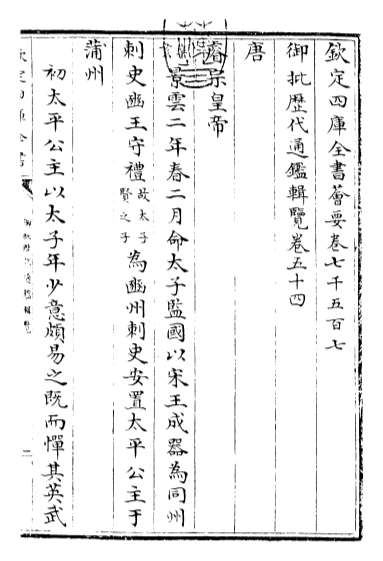 欽定四庫全書薈要卷七千五百七
御批歷代通鑑輯覽卷五十四
唐
睿宗皇帝
景雲二年春二月命太子監國以宋王成器為同州
刺史豳王守禮故太子賢之子為豳州刺史安置太平公主于
蒲州
初太平公主以太子年少意頗易之既而憚其英武